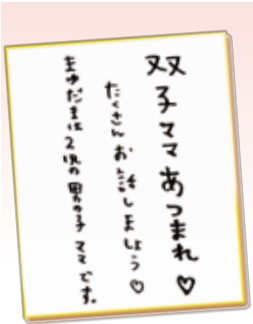 双子ママあつまれ♡
たくさんお話しましょう♡
まゆだまは2児の男の子ママです。